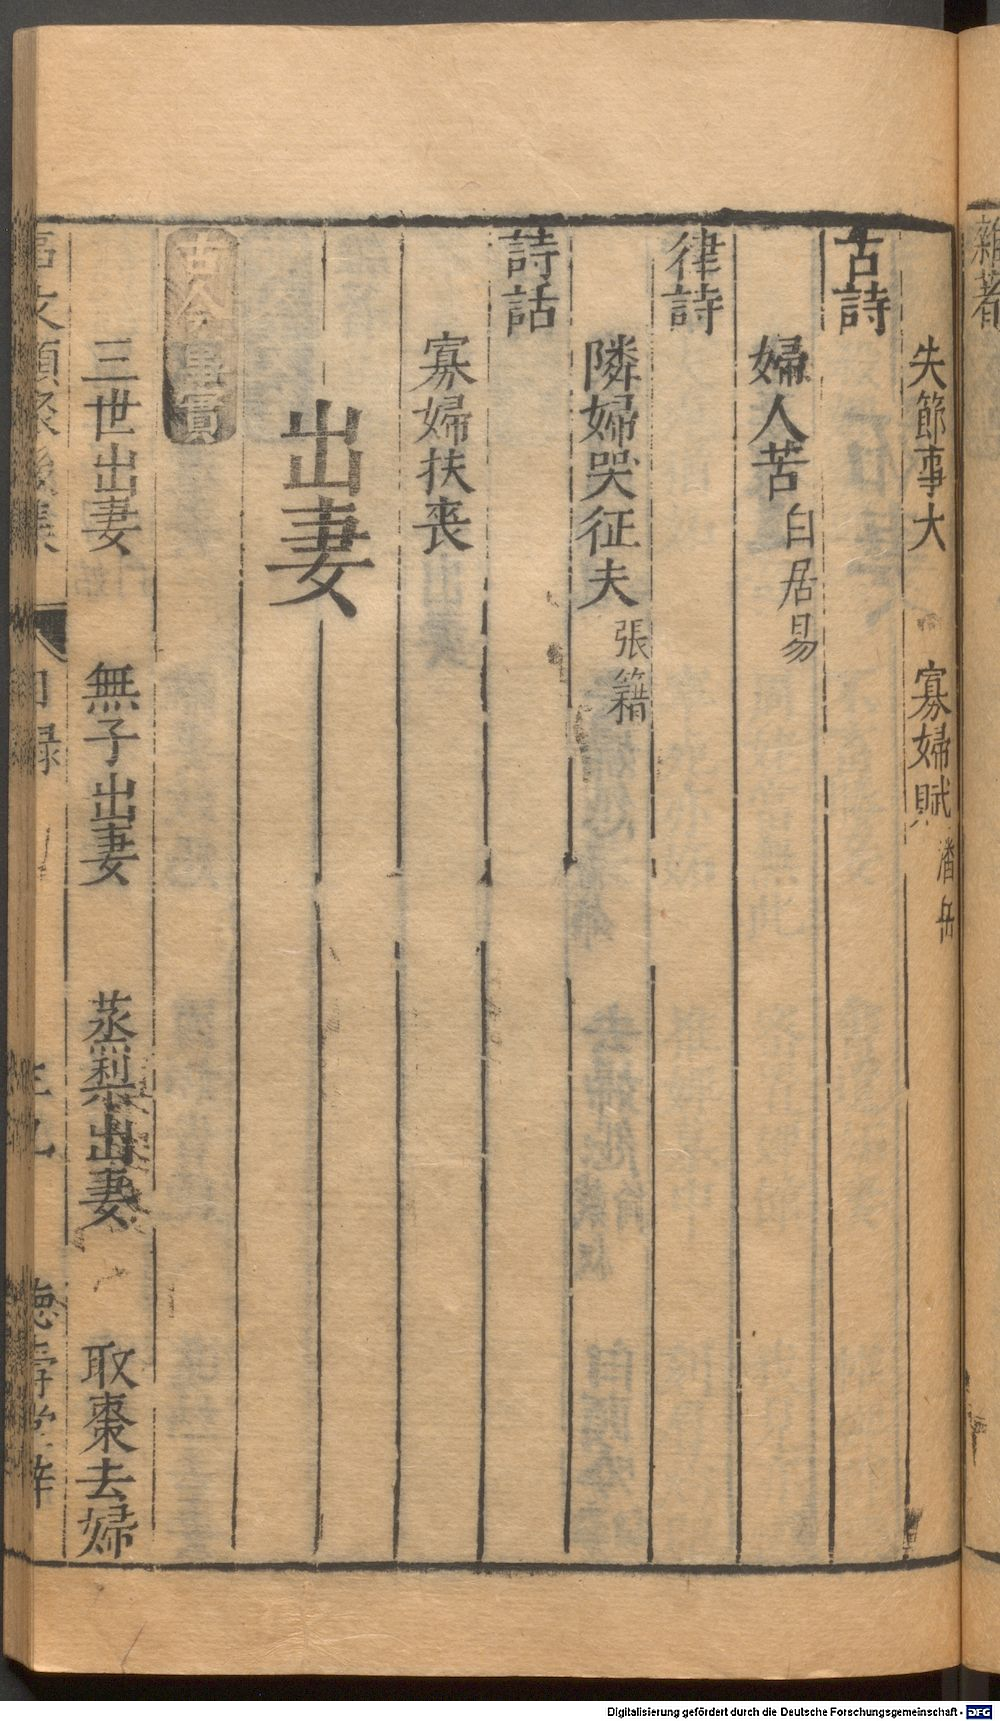 雜著
失節事大 寡婦賦 潘岳
古詩
婦人苦 白居易
律詩
隣婦哭征夫 張籍
詩話
寡婦扶喪
出妻
古今事實
三世出妻 無子出妻 蒸梨出妻 取棗去婦
事文類聚後集 目録 德壽堂梓
Digitalisierung gefördert durch die Deutsche Forschungsgemeinschaft - DFG